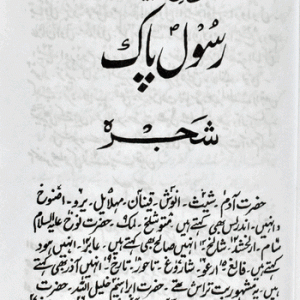 رسُولؐ پاک
شجرہ
حضرت آدمؑ۔ شیثؑ۔ انوشؑ۔ قینان۔ مہلائل۔ یرو۔ اخنوخ
(انہیں۔ ادریس بھی کہتے ہیں۔ متوشلخ۔ لمک۔ حضرت نوحؑ علیہ السلام
سام۔ ارفخشد۔ شالخ (انہیں صالح بھی کہتے ہیں۔ عابر۔ انہیں ہود
کہتے ہیں۔ فالغ۔ ارغو۔ شاروغ۔ ناحور۔ تارخ۔ انہیں آذر بھی کہتے
یہ مشہور بت تراش تھے۔ حضرت ابراہیم خلیل اللہ۔ حضرت